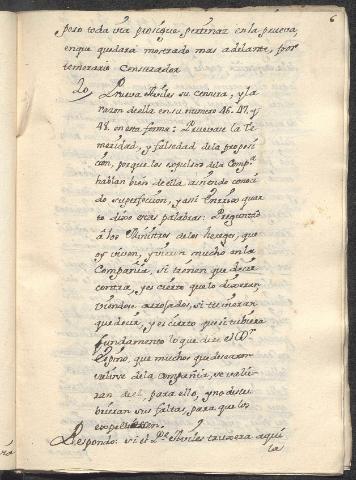 6
poso toda via prosigue, pertinaz en la prueva,
en que quedará mostrado mas adelante, por
temerario Censurador
20, Prueva Aviles su censura, y la
razon de ella en su numero 46. 47. y
48. en esta forma: Pruevase la Te-
meridad, y falsedad de la proposi-
cion, porque los expulsos de la Compª
hablan bien de ella, aviendo conoci-
do su perfeccion, y assi
to dixo estas palabras: Preguntad
á los Ministros de los hereges, que
oy viven, y vieron mucho en la
Compañia, si tienen que decir
contra, y es cierto que lo dixeran,
viendose arrojados, si tuvieran
que decir, y es cierto que si tubiera
fundamento lo que dice el Dr
Espino, que muchos que desearon
salirse de la Compañia, se vali-
ran de el, para ello, y no descu-
brieran sus faltas, para que los
expeliessen.
Respondo: si el Pe Aviles truxera aqui
la